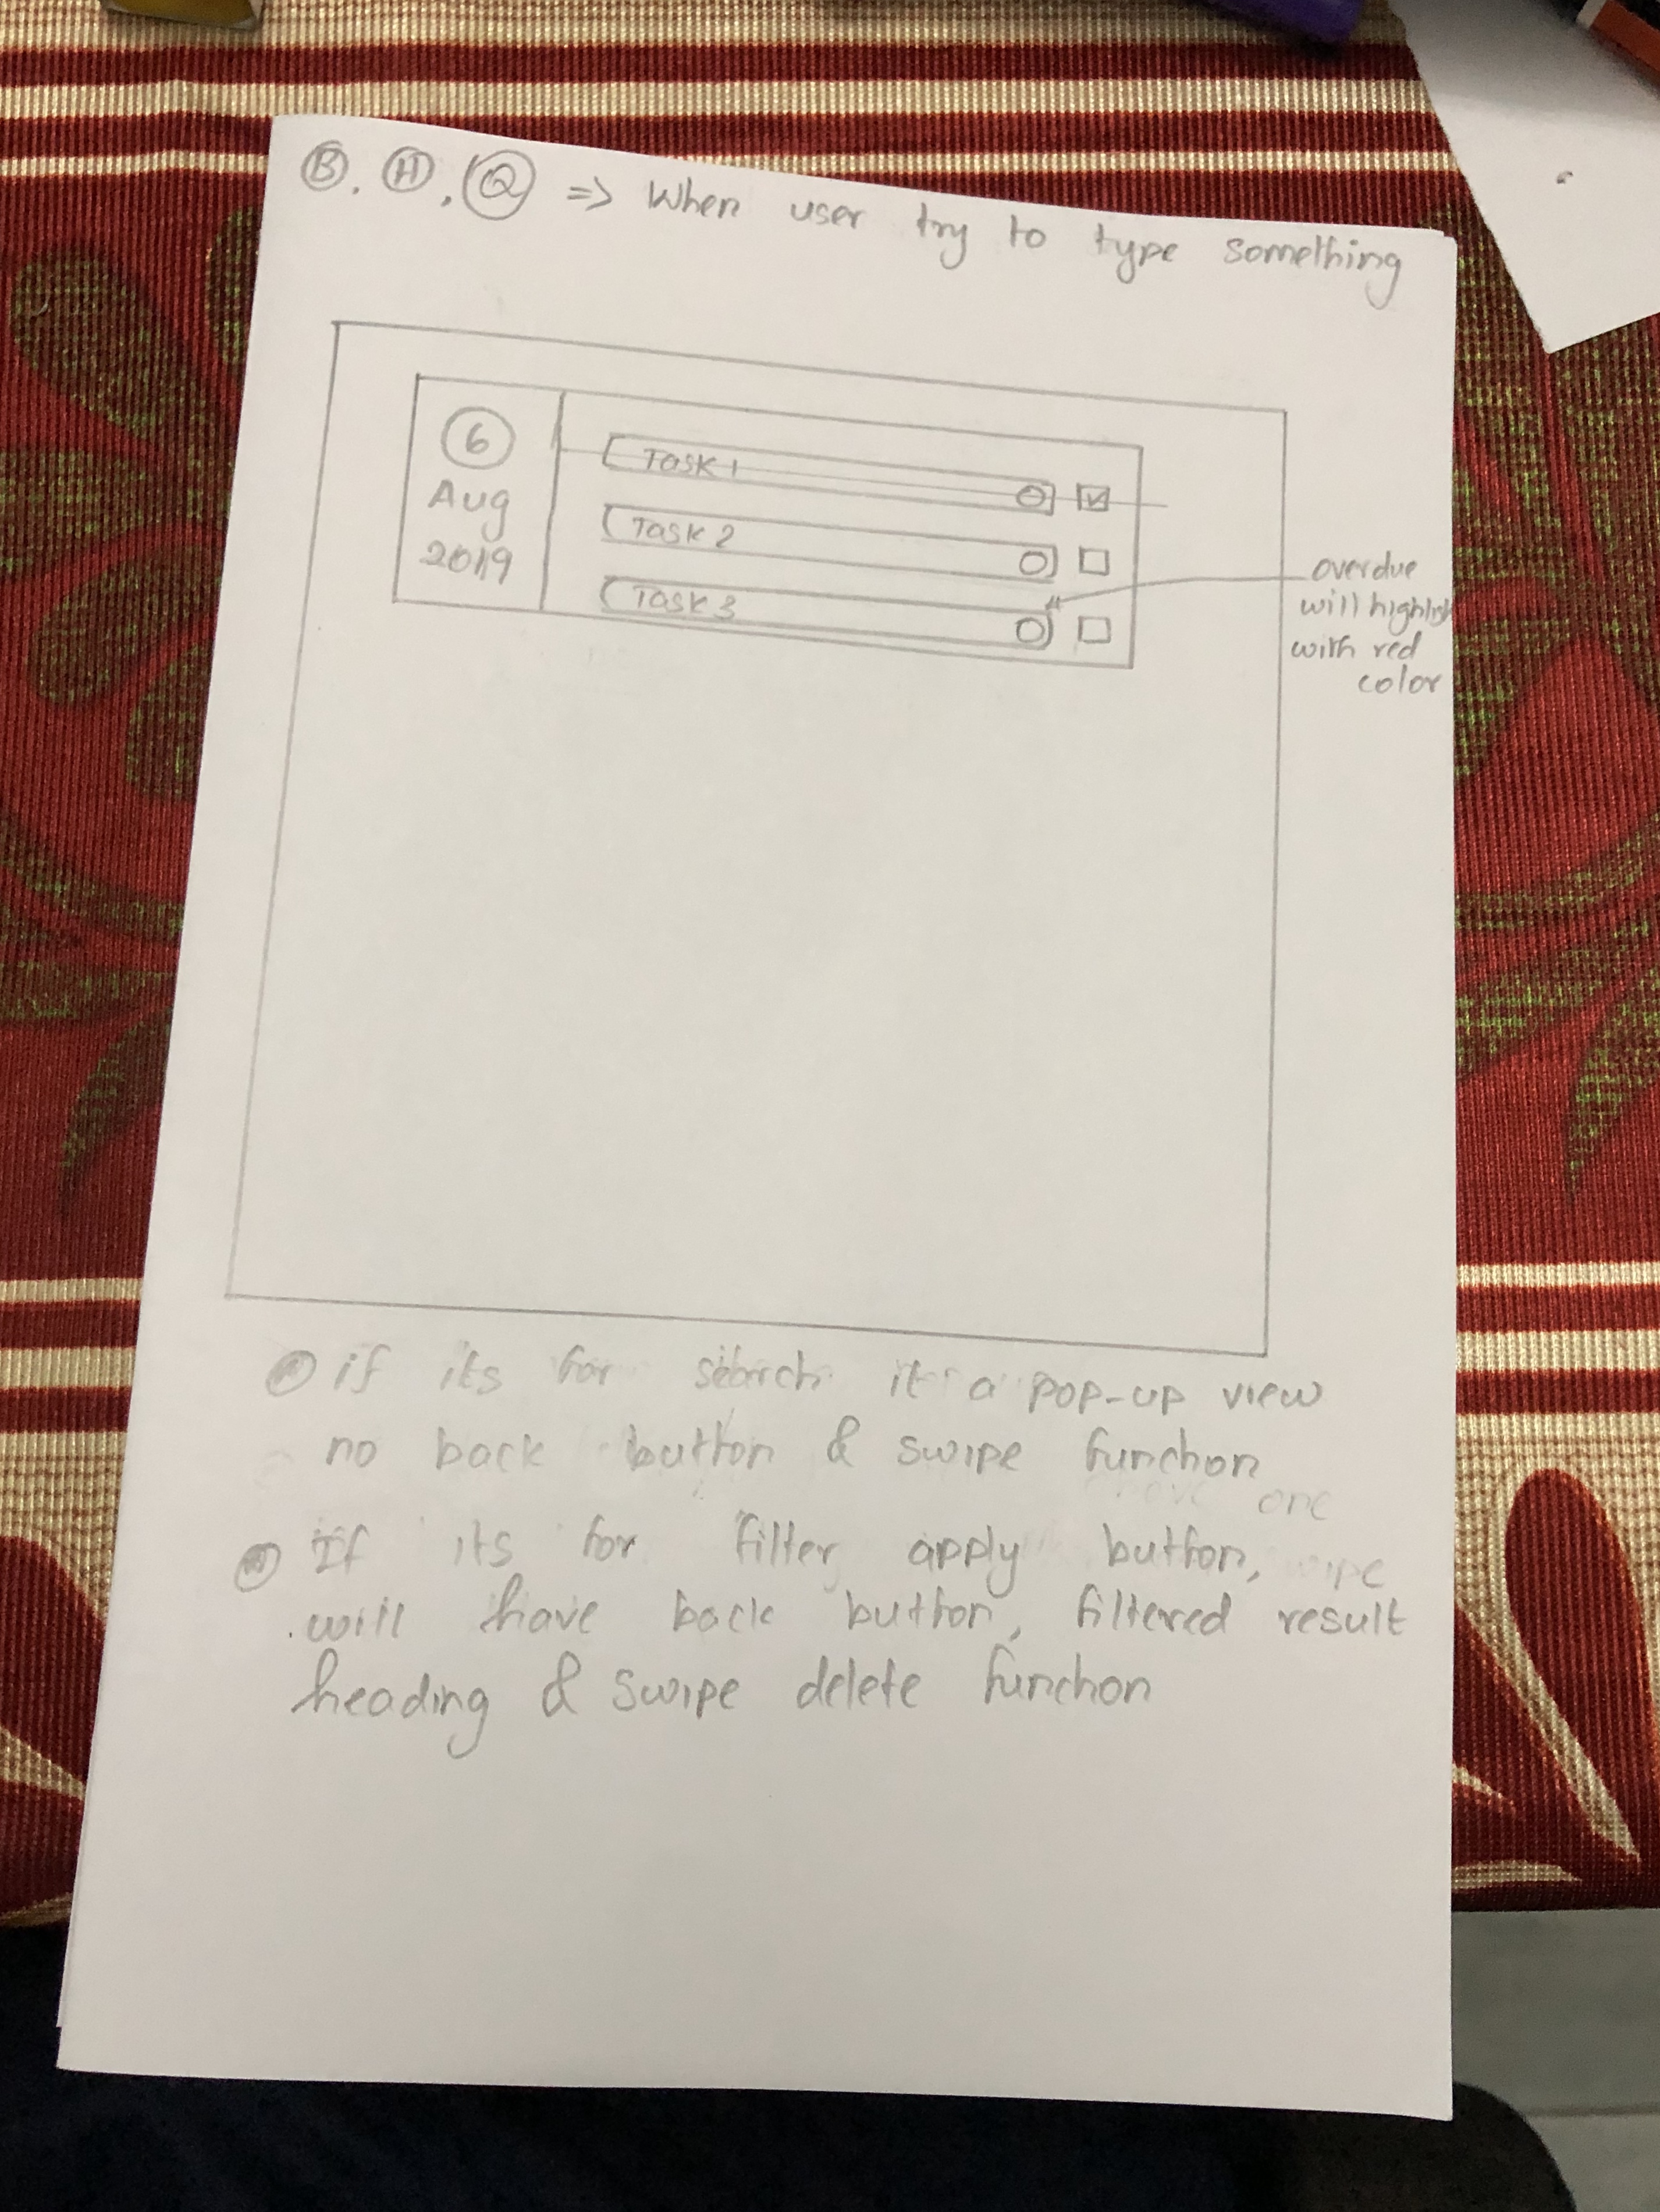 B, H, Q => When user try to type something
6
Aug
2019
Task 1
Task 2
Task 3
overdue
will highligh
with red
color
if its for search it a pop-up view
no back button & swipe function
one
If its for filter apply button,
will have back button, filtered result
heading & swipe delete function